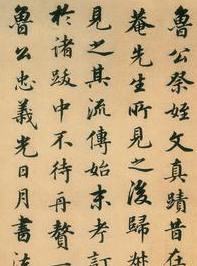 魯公祭姪文真蹟昔在
菴先生所見之後歸
見之其流傳始末考訂
於諸跋中不待再贅一
魯公忠義光日月書法